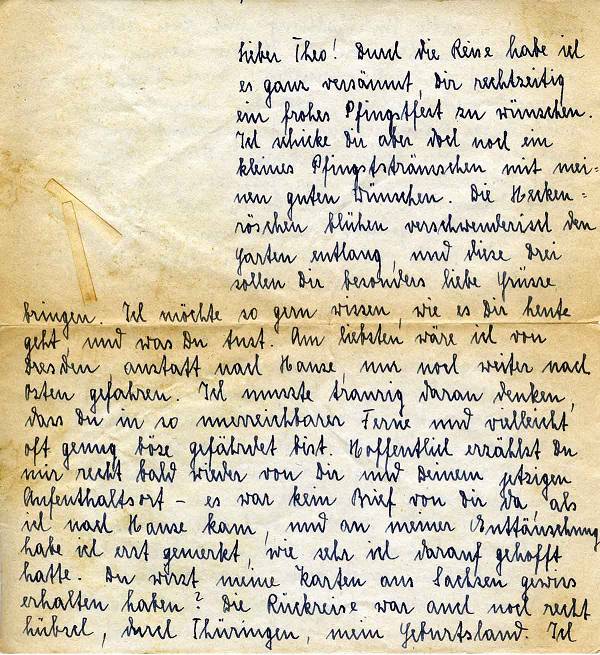 Lieber Theo! Durch die Reise habe ich
es ganz versäumt, Dir rechtzeitig
ein frohes Pfingstfest zu wünschen.
Ich schicke Dir aber doch noch ein
kleines Pfingststräusschen mit mei-
nen guten Wünschen. Die Hecken=
röschen blühen verschwenderisch den
Garten entlang, und diese drei
sollen Dir besonders liebe Grüsse
bringen. Ich möchte so gern wissen, wie es Dir heute
geht und was Du tust. Am liebsten wäre ich von
Dresden, anstatt nach Hause, nur noch weiter nach
Osten gefahren. Ich musste traurig daran denken,
dass Du in so unerreichbarer Ferne und vielleicht
oft genug böse gefährdet bist. Hoffentlich erzählst Du
mir recht bald wieder von Dir und Deinem jetzigen
Aufenthaltsort – es war kein Brief von Dir da, als
ich nach Hause kam, und an meiner Enttäuschung
habe ich erst gemerkt, wie sehr ich darauf gehofft
hatte. Du wirst meine Karten aus Sachsen gewiss
erhalten haben? Die Rückreise war auch noch recht
hübsch, durch Thüringen, mein Geburtsland. Ich